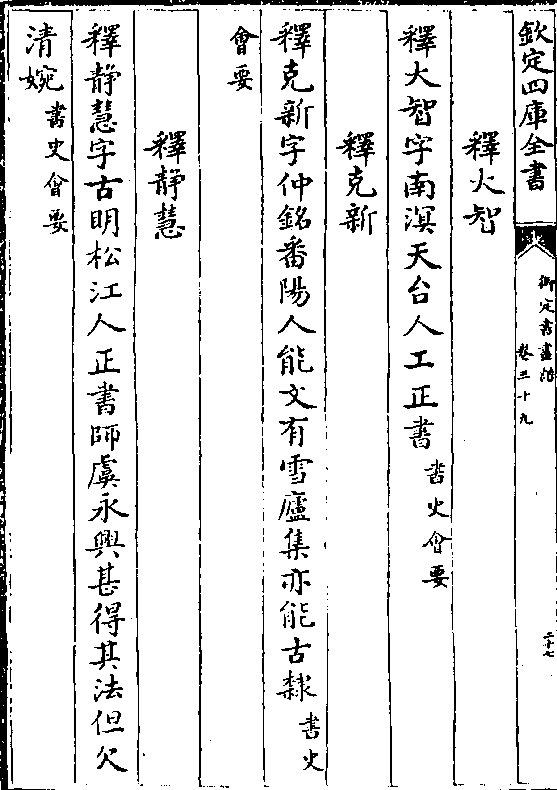 欽定四庫全書
御定書畫譜
卷三十九
二十七
釋大智
釋大智字南溟天台人工正書書史會要
釋克新
釋克新字仲銘番陽人能文有雪廬集亦能古隸書史
會要
釋静慧
釋静慧字古明松江人正書師虞永興甚得其法但欠
清婉書史會要